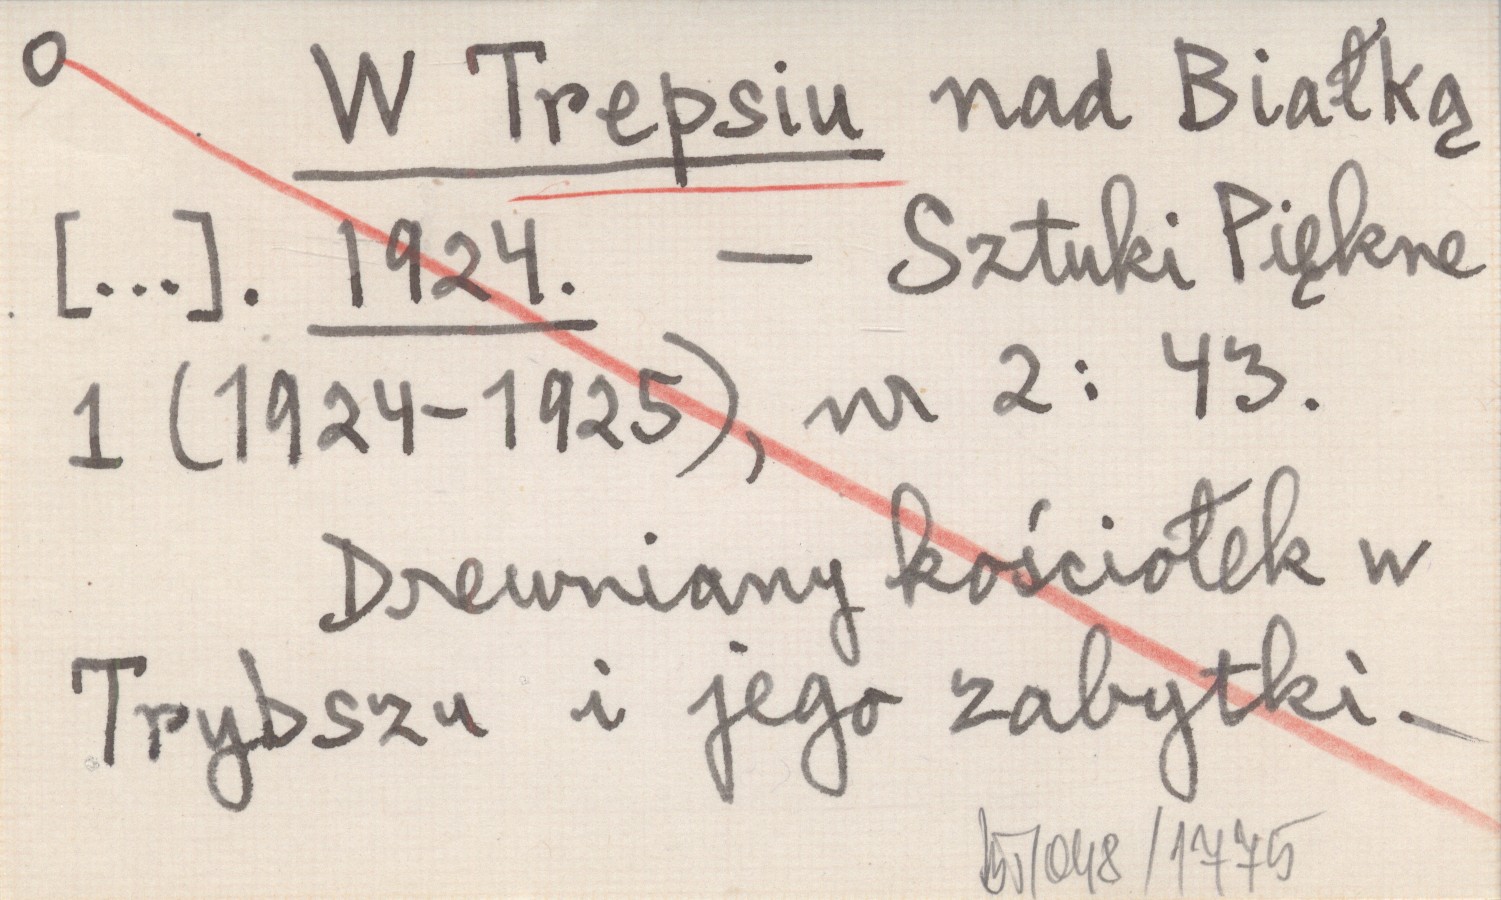 O W Trepsiu nad Białką
[...]. 1924. — Sztuki Piękne
1 (1924-1925), nr 2: 43.
Drewniany kościołek w
Trybszu i jego zabytki.
/048/1775